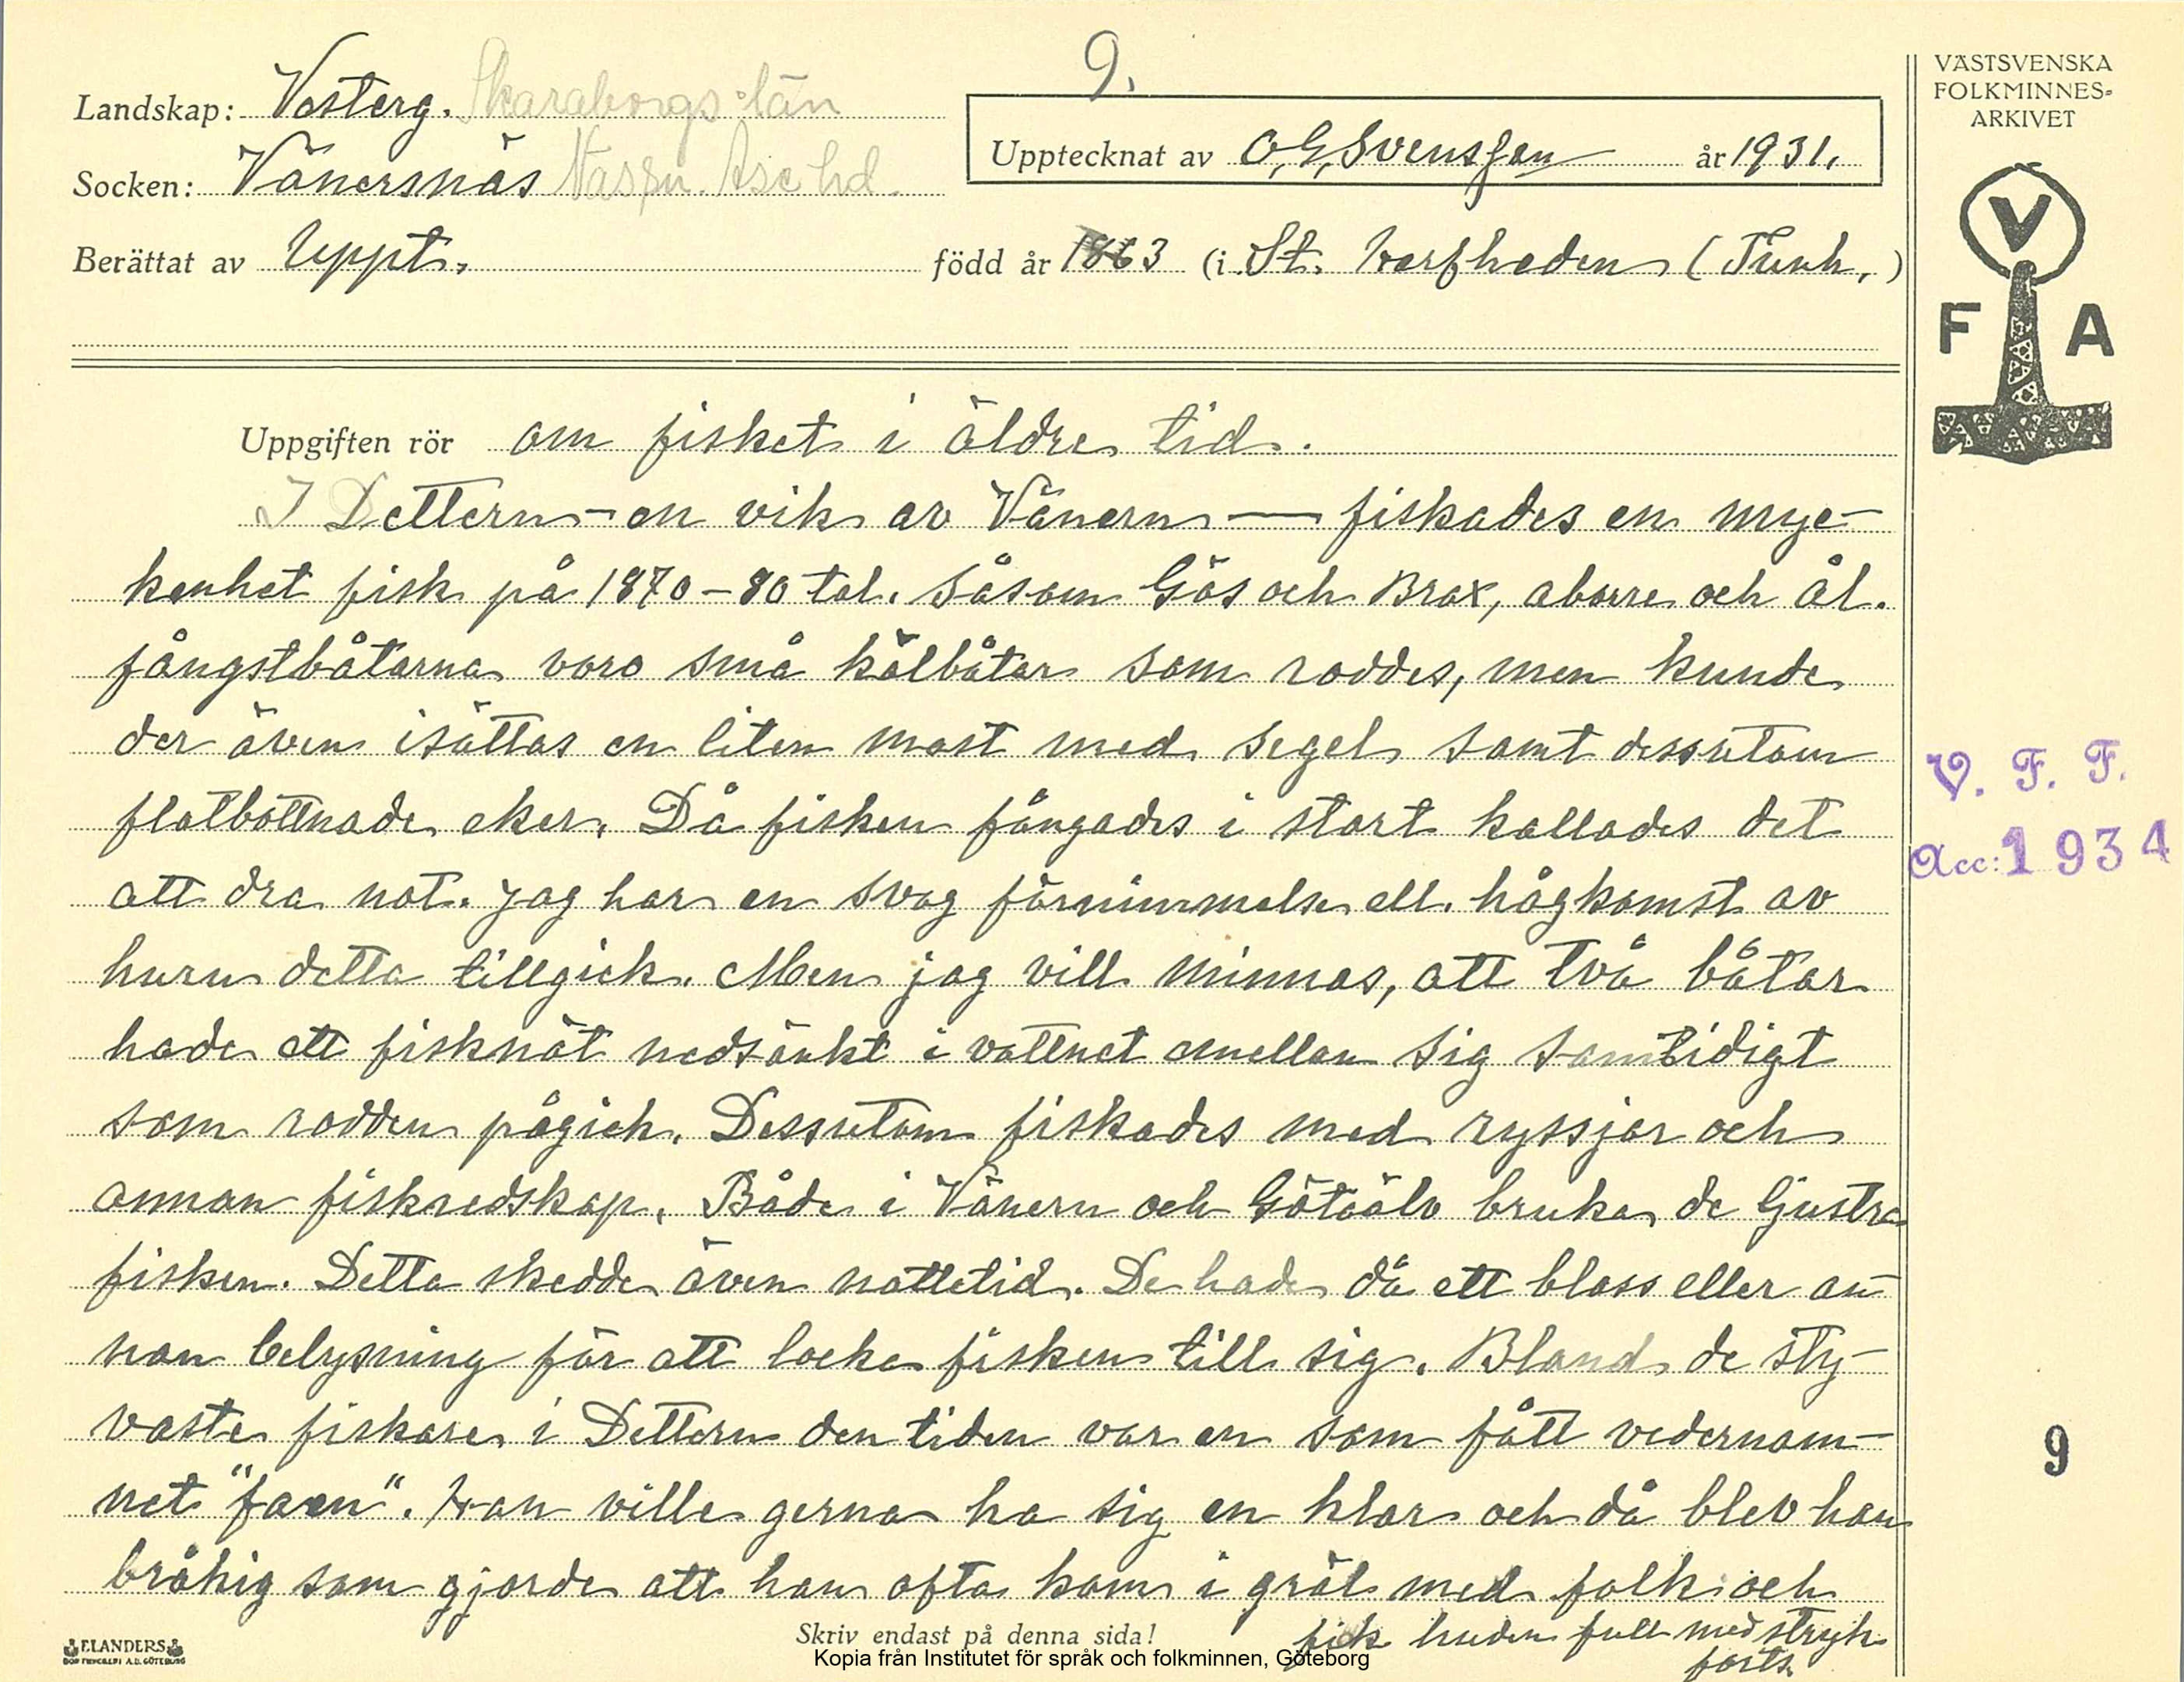 9.
Landskap: Västerg. Skaraborgs län
Upptecknat av O. G. Svensson år 1931.
Socken: Vänersnäs Åse hd.
Berättat av Uppt. född år 1863 (i St. Harfheden (Tunh.)
Uppgiften rör om fisket i äldre tid.
I Dettern - en vik av Vänern — fiskades en myc-
kenhet fisk på 1870-80 tal. Såsom Gös och Brax, aborre och ål.
fångstbåtarna voro små kölbåtar som roddes, men kunde
der även isättas en liten mast med segel samt dessutom
flatbottnade ekor. Då fisken fångades i stort kallades det
att dra not. Jag har en svag förnimmelse ell. hågkomst av
huru detta tillgick. Men jag vill minnas, att två båtar
hade ett fisknät nedsänkt i vattnet emellan sig samtidigt
som rodden pågick. Dessutom fiskades med ryssjor och
annan fiskredskap. Både i Vänern och Götaälv bruka de ljustra
fisken. Detta skedde även nattetid. De hade då ett bloss eller an-
nan belysning för att locka fisken till sig. Bland de sty-
vaste fiskare i Dettern den tiden var en som fått vedernam-
net "faen". Han ville gerna ha sig en klar och då blev han
bråkig som gjorde att han ofta kom i gräl med folk och
fick huden full med stryk
forts.
Skriv endast på denna sida!
Kopia från Institutet för språk och folkminnen, Göteborg
ELANDERS
VÄSTSVENSKA
FOLKMINNES-
ARKIVET
V
F A
V. F. F.
Acc: 1934
9